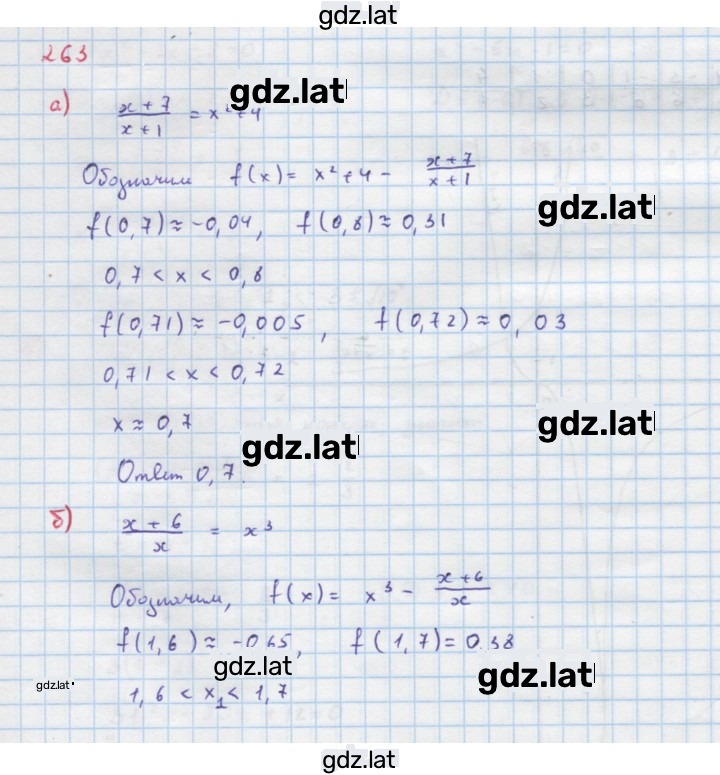 gdz.lat
263
а) (x+7)/(x+1) = x²+4
gdz.lat
Обозначим f(x) = x²+4 - (x+7)/(x+1)
gdz.lat
f(0,7) ≈ -0,04, f(0,8) ≈ 0,31
0,7 < x < 0,8
f(0,71) ≈ -0,005, f(0,72) ≈ 0,03
0,71 < x < 0,72
x ≈ 0,7
gdz.lat
gdz.lat
Ответ 0,7.
б) (x+6)/x = x³
Обозначим, f(x) = x³ - (x+6)/x
f(1,6) ≈ -0,65, f(1,7) = 0.38
gdz.lat
gdz.lat
gdz.lat
1,6 < x₁ < 1,7
gdz.lat